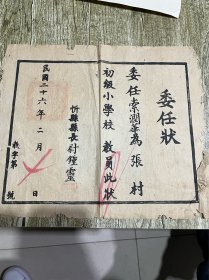 委任狀
委任索潤華為張村
初級小學校教員此狀
忻縣縣長付鍾靈
民國三十六年二月日
教字第號